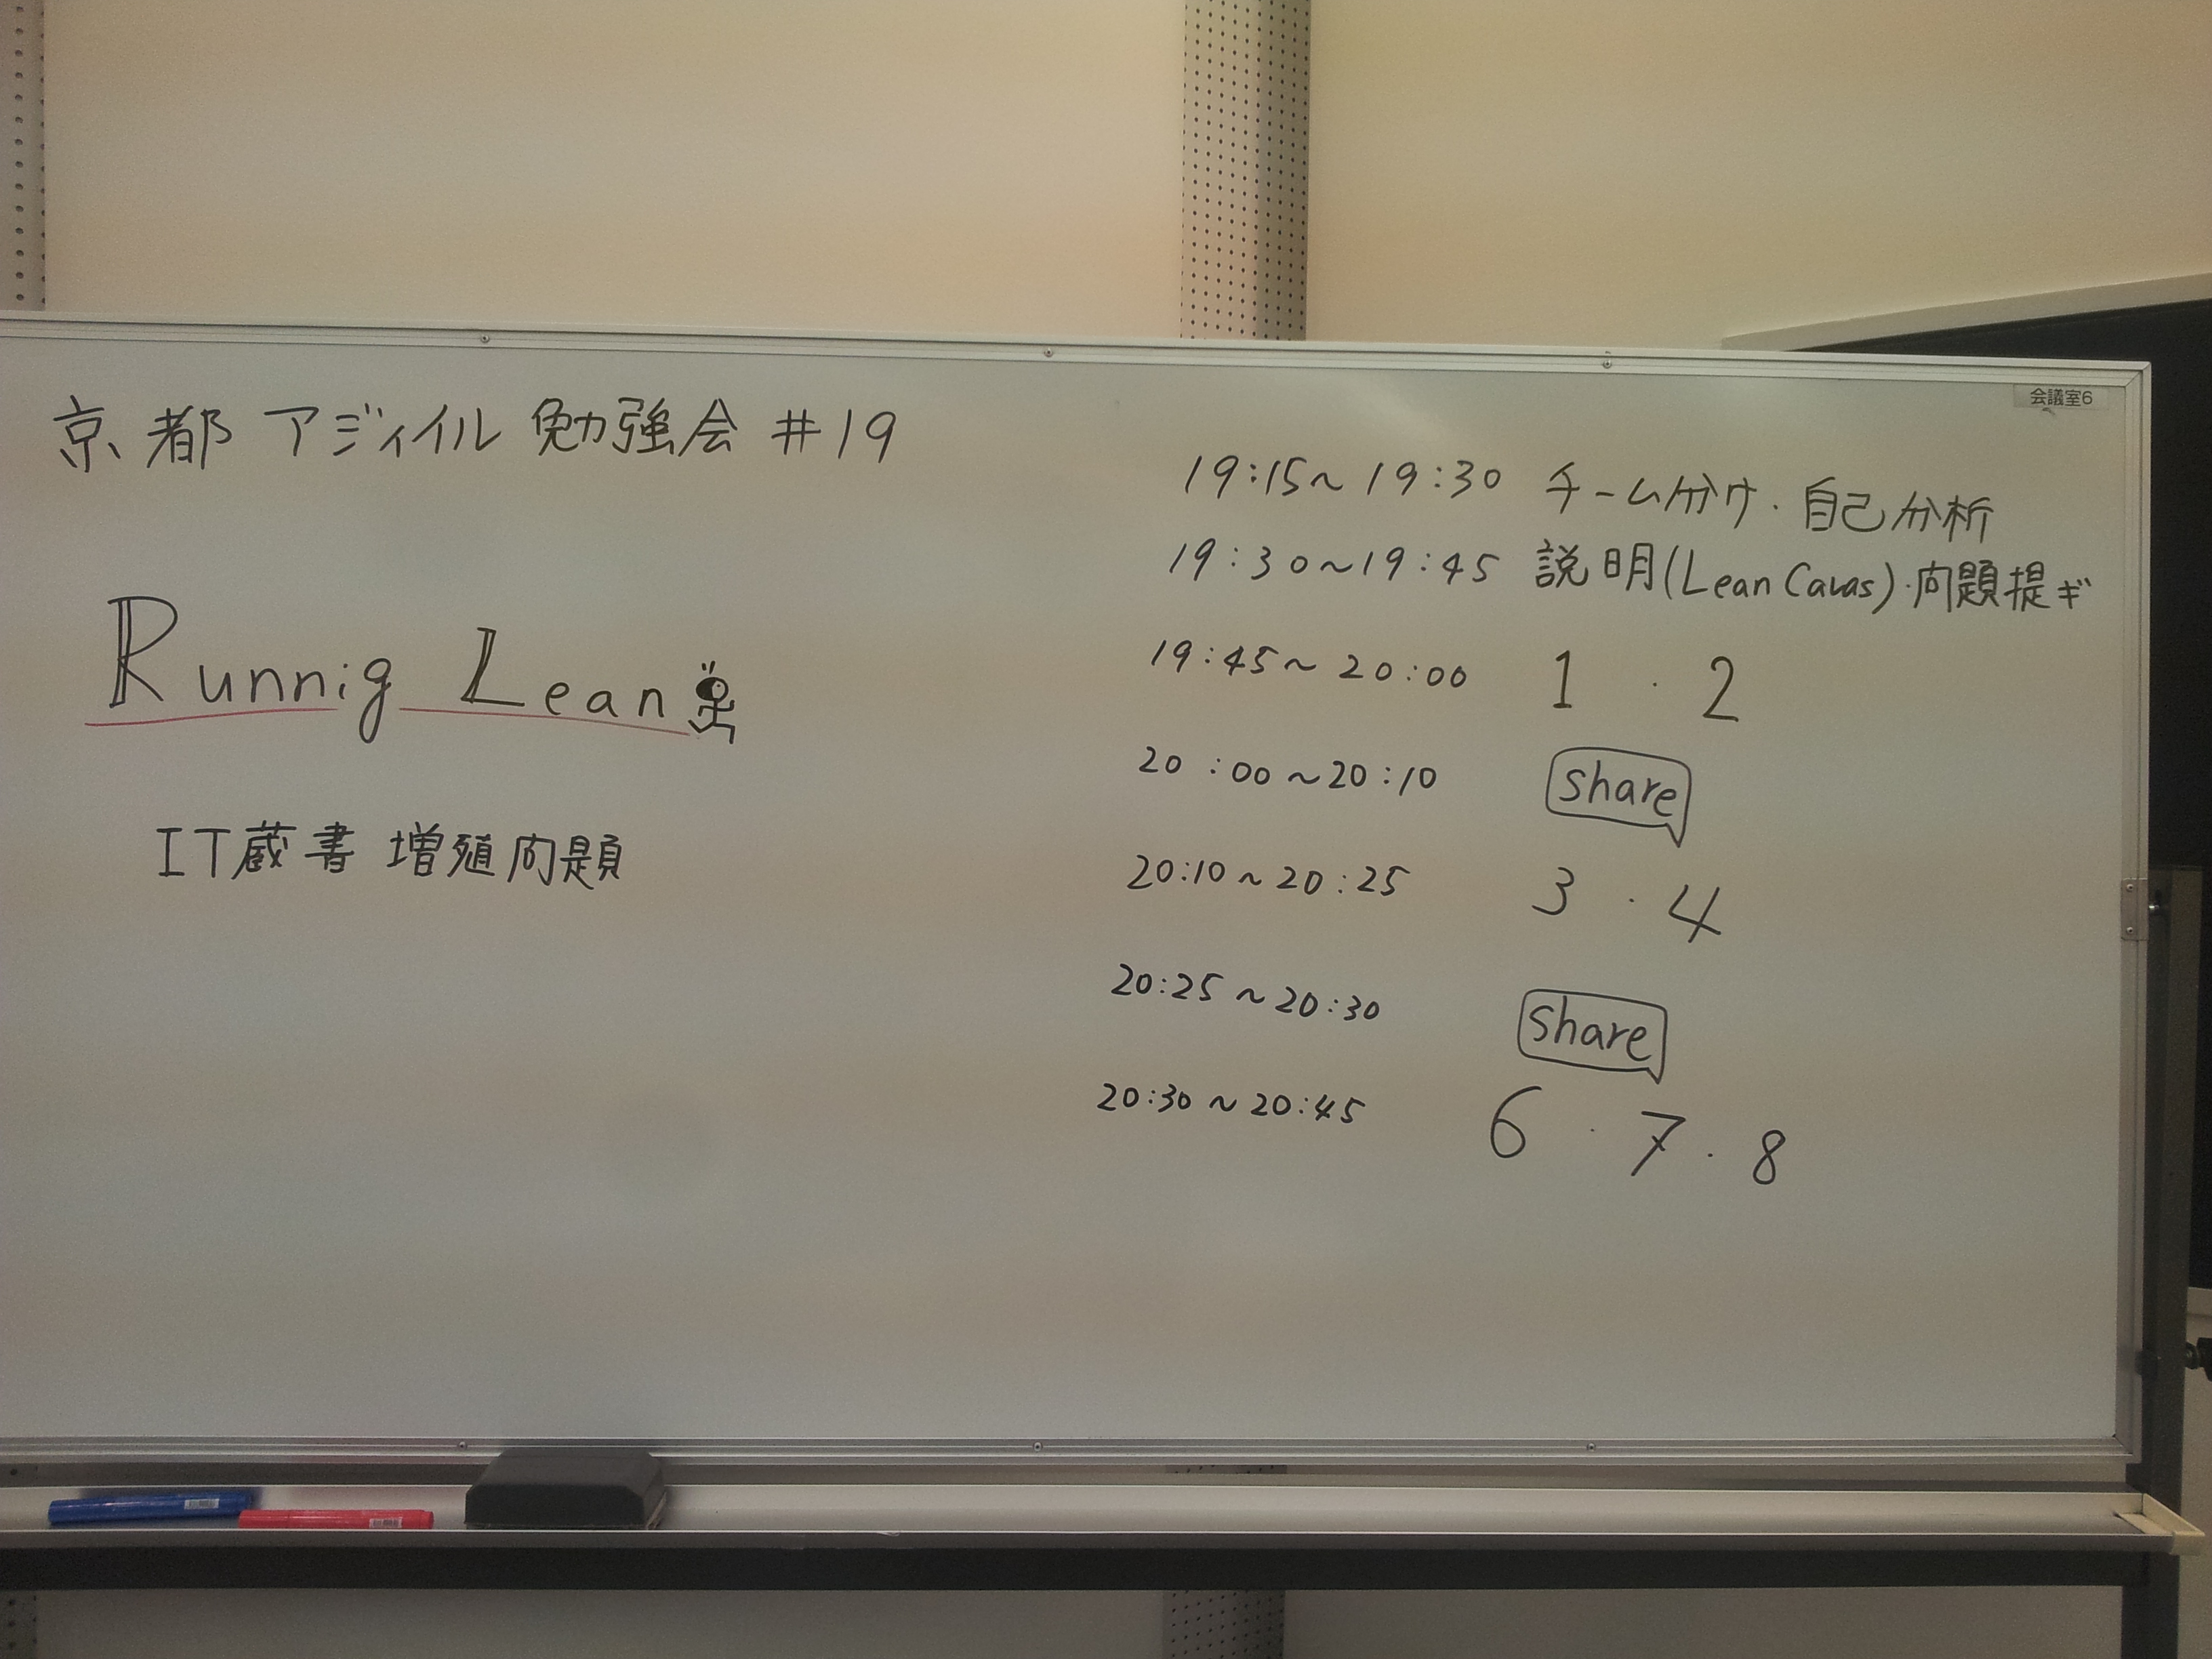 京都アジィイル勉強会 #19
Runnig Lean
IT蔵書増殖問題
会議室6
19:15～19:30 チーム分け・自己分析
19:30～19:45 説明(Lean Cavas)・問題提ギ
19:45～20:00 1・2
20:00～20:10 share
20:10～20:25 3・4
20:25～20:30 share
20:30～20:45 6・7・8